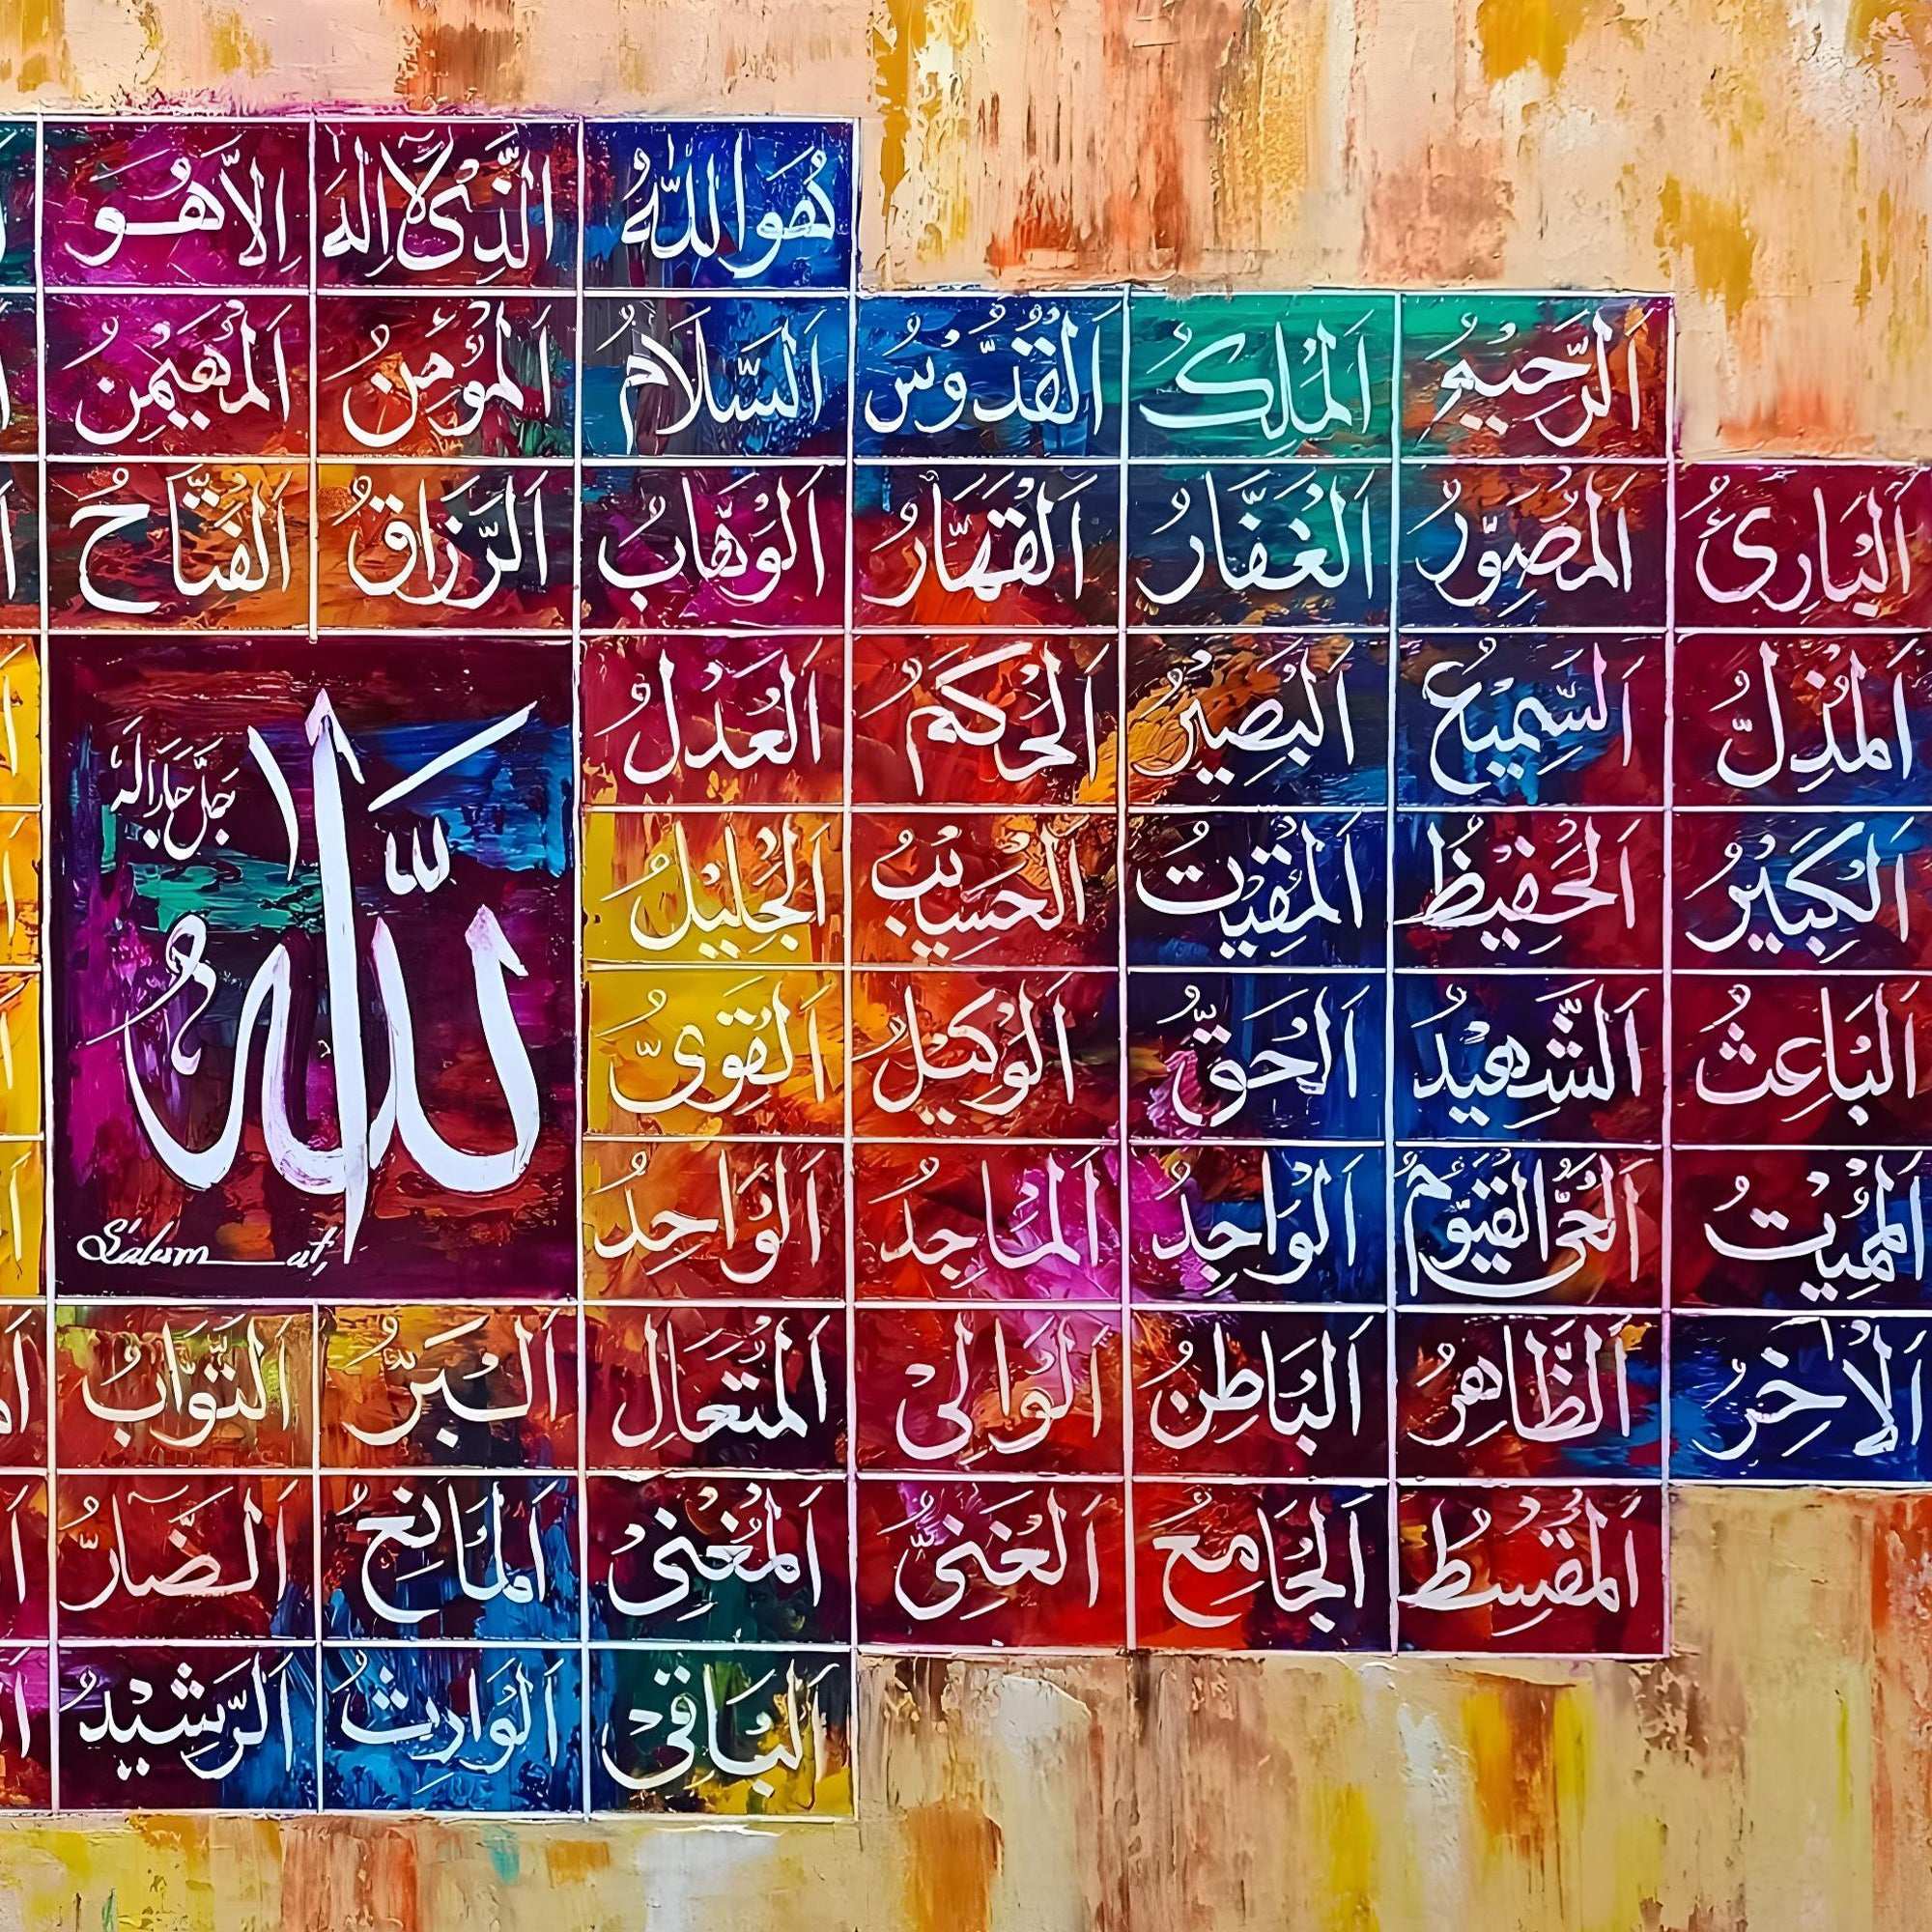 هُوَ اللّٰهُ الَّذِی لَا اِلٰهَ اِلَّا هُوَ
اَلرَّحِيْمُ اَلْمَلِكُ اَلْقُدُّوْسُ اَلسَّلَامُ اَلْمُؤْمِنُ اَلْمُهَيْمِنُ
اَلْبَارِئُ اَلْمُصَوِّرُ اَلْغَفَّارُ اَلْقَهَّارُ اَلْوَهَّابُ اَلرَّزَّاقُ اَلْفَتَّاحُ
اَلْمُذِلُّ اَلسَّمِيْعُ اَلْبَصِيْرُ اَلْحَكَمُ اَلْعَدْلُ
اَللّٰهُ
جَلَّ جَلَالُهُ
اَلْكَبِيْرُ اَلْحَفِيْظُ اَلْمُقِيْتُ اَلْحَسِيْبُ اَلْجَلِيْلُ
اَلْبَاعِثُ اَلشَّهِيْدُ اَلْحَقُّ اَلْوَكِيْلُ اَلْقَوِیُّ
اَلْمُمِيْتُ اَلْحَیُّ الْقَيُّوْمُ اَلْوَاجِدُ اَلْمَاجِدُ اَلْوَاحِدُ
Salum
اَلْاٰخِرُ اَلظَّاهِرُ اَلْبَاطِنُ اَلْوَالِیْ اَلْمُتَعَالِ اَلْبَرُّ اَلتَّوَّابُ
اَلْمُقْسِطُ اَلْجَامِعُ اَلْغَنِیُّ اَلْمُغْنِیْ اَلْمَانِعُ اَلضَّارُّ
اَلْبَاقِیْ اَلْوَارِثُ اَلرَّشِيْدُ